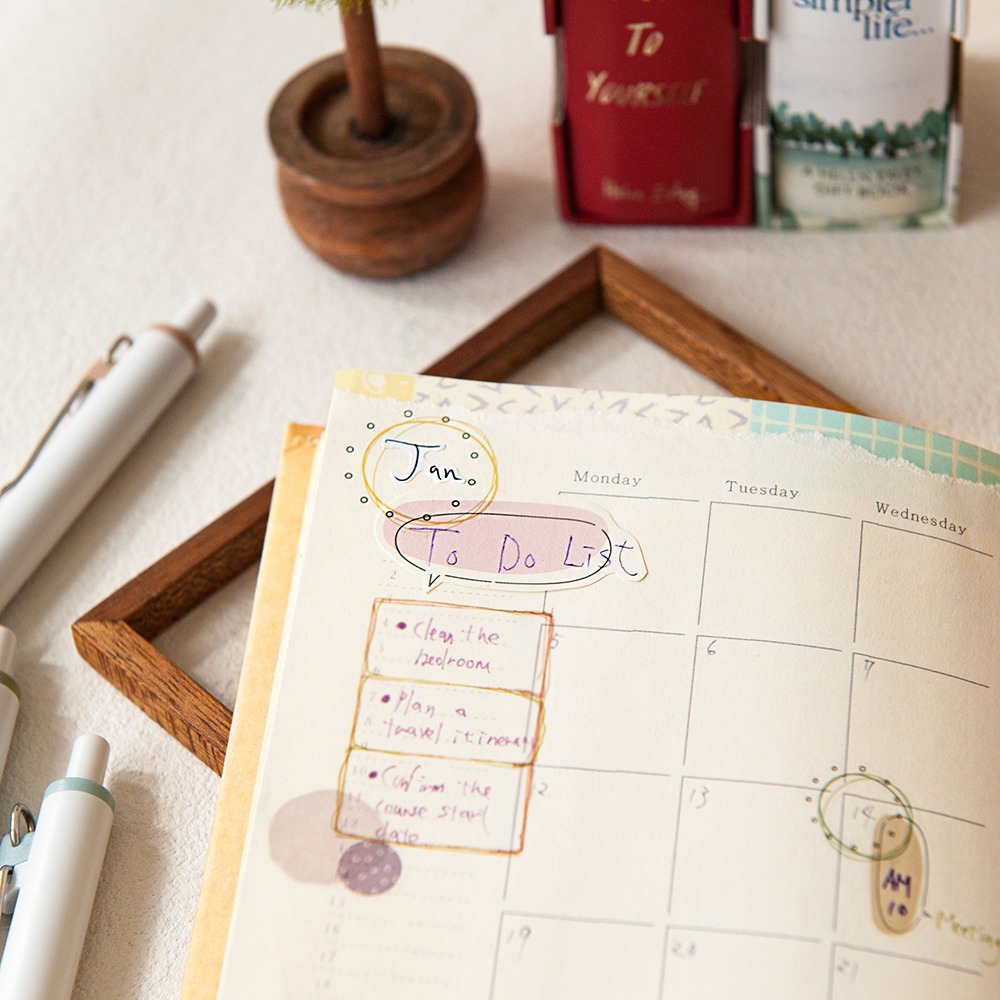 To
YOURSELF
simpler
life...
GIFT BOOK
Jan
To Do List
Monday
Tuesday
Wednesday
2
4
5
7
8
10
15
16
17
18
• Clean the
bedroom
• Plan a
travel itinerary
• Confirm the
course start
date
5
6
7
2
13
14
AM
10
Meeting
19
20
21